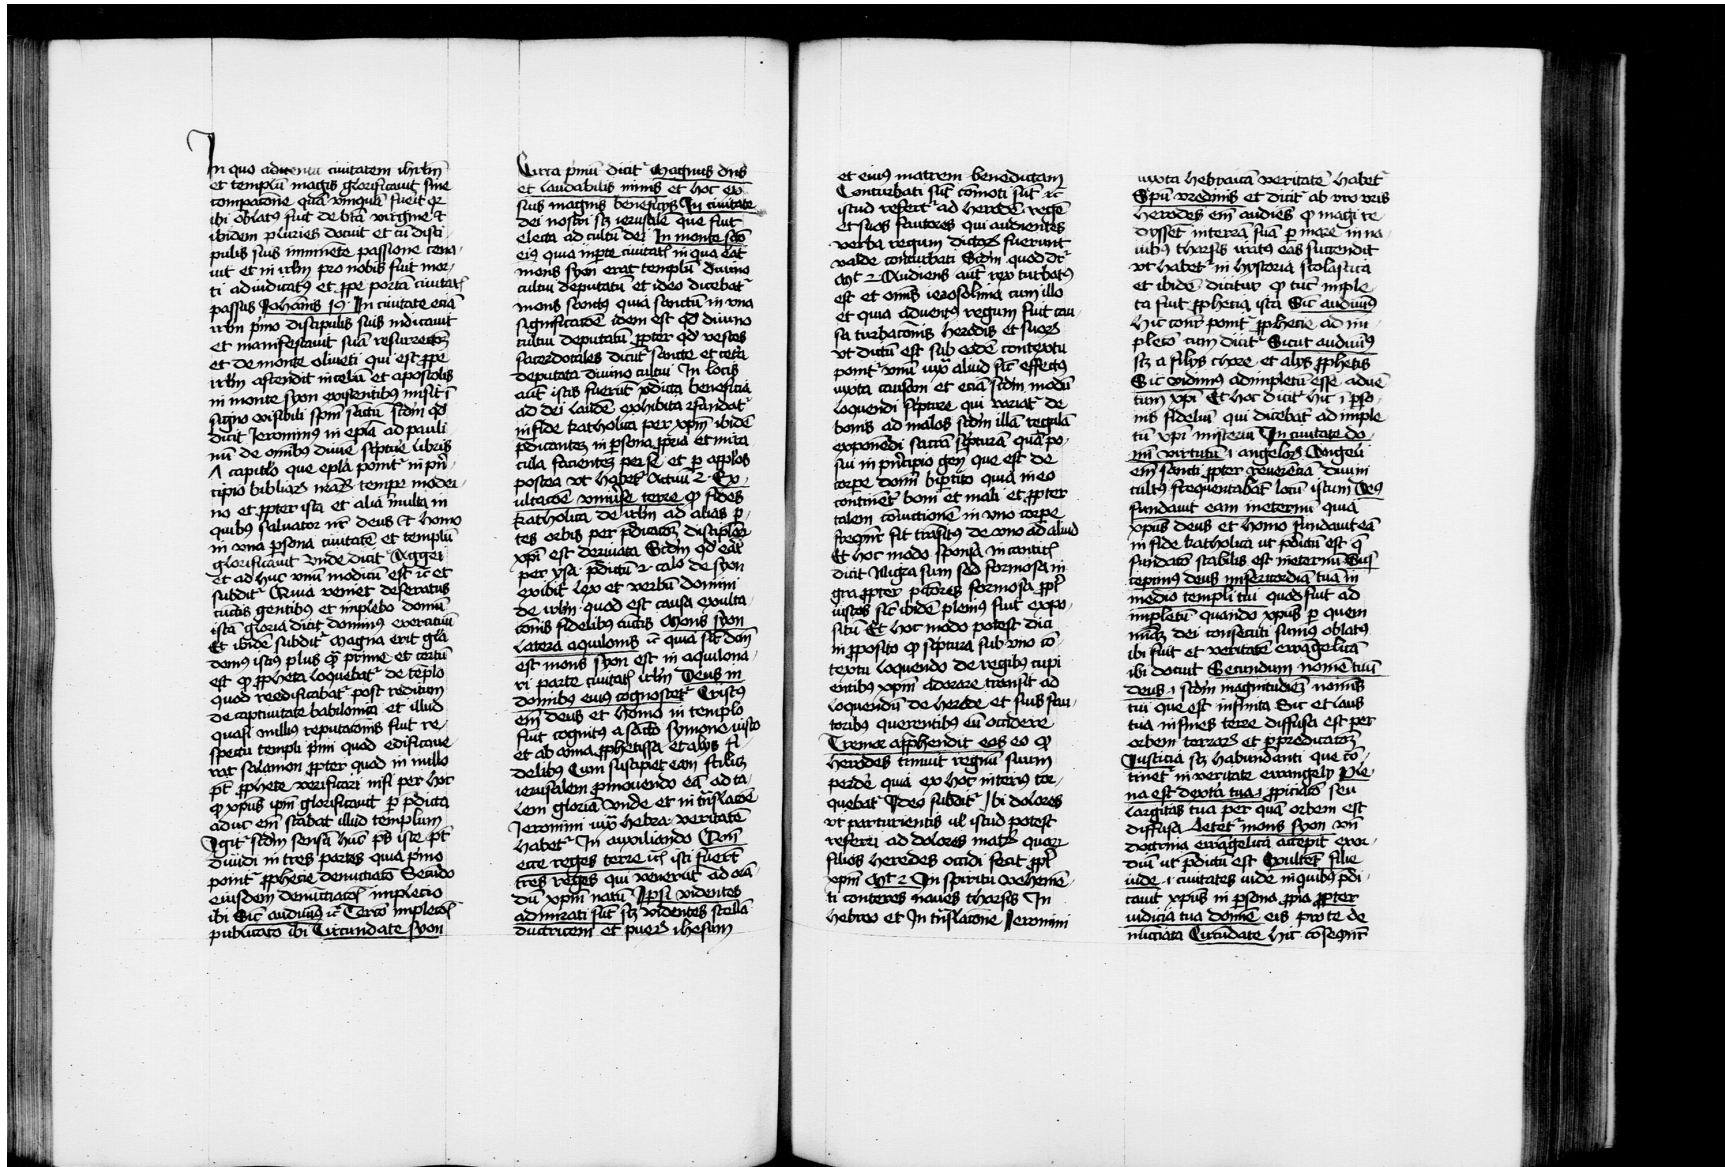 In quo adventu civitatem ihrlm̄
et templū magis glorificauit sine
compatōne quā vmquā fuerit qr
ibi oblatus fuit de btā virgine et
ibidem pluries docuit et cū disci
pulis suis iminēte passione cena
uit et in irlm pro nobis fuit mor-
ti adiudicatus et ꝓpe portā ciuitat̄
passus Johānis 19 In ciuitate eciā
irlm p̄mo discipulis suis indicauit
et manifestauit suā resurrectōꝫ
et de monte oliueti qui est ꝓpe
irlm ascendit in celū et apostolis
in monte syon existentibꝰ misit ī
signo visibili spm̄ sāctū scdm qd
dicit Jeronimꝰ in eplā ad pauli
nū de omībꝰ diuīe scptūe libris
A capitlo que eplā ponit̄ in pn̄
cipio bibliaꝝ nr̄aꝝ tempe moder-
no et ꝓpter ista et alia multa in
quibꝰ saluator nr̄ deus et homo
in vna p̄sona ciuitatē et templū
glorificauit vnde dicit Aggei
et ad huc vnū modicū est ic̄ et
subdit̄ Et veniet desideratus
cūctis gentibus et implebo domū
istā gloria dicit dominꝰ exercituū
Et ibidē subdit̄ Magna erit glā
domꝰ istiꝰ plus qꝫ prime et certū
est qͥ ꝓpheta loquebat̄ de tēplo
quod reedificabat̄ post reditum
de captiuitate babilonica et illud
quasi nullius reputacōnis fuit re-
spectu templi p̄mi quod edificaue
rat salamon ꝓpter quod in nullo
pt̄ ꝓphete verificari nisi per hoc
qͥ xpus ipm̄ glorificauit p̄ pdicta
aduc em̄ stabat illud templum
Igit̄ scdm sensū hūc ps iste pt̄
diuidi in tres partes quia p̄mo
ponit̄ ꝓphecie denunciatō Secūdo
eiusdem denūciatōis implecio
ibi Sic audiuimꝰ ic̄ Tercō impletōis
publicatō ibi Circumdate syon
Circa p̄mū dicit̄ Magnus dn̄s
et laudabilis nimis et hoc ex
suis magnis beneficijs In ciuitate
dei nostri scꝫ ierusalē que fuit
electa ad cultū dei In monte scō
eiꝰ quia in p̄te ciuitat̄ in qua erat
mons syon erat templū diuino
cultui deputatū et ideo dicebat̄
mons sanctus quia sanctū in vna
significatōe idem est qd diuino
cultui deputatū ꝓpter qd vestes
sacerdotales dicūt̄ sancte et cetā
deputata diuino cultui In locis
aūt istis fuerūt p̄dicta beneficia
ad dei laudē exhibita et fundat̄
in fide katholica per xpm̄ ibidē
p̄dicantē in p̄sona ꝓpria et mira
cula facientē per se et p̄ apl̄os
postea vt habet̄ Actuū 2 Ex-
ultatōe vniuse terre qͥ fides
katholica de irlm ad alias p̄-
tes orbis per p̄dicatōꝫ discipl̄oꝝ
xp̄i est deriuata Scdm qd erat
per ysa p̄dictū 2 ca̅lo de syon
exibit lex et verbū domini
de irlm quod est causa exulta
cōnis fidelibꝰ cūctis Mons syon
latera aquilonis ic̄ quia sic̄ dc̄m
est mons syon est in aquilona-
ri parte ciuitatis irlm Deus in
domibꝰ eius cognoscet̄ Cristus
em̄ deus et homo in templo
fuit cognitꝰ a sācto symone iusto
et ab anna ꝓphetissa et alijs fi-
delibꝰ Cum suscipiet eam scilicꝫ
ierusalem p̄mouendo eā ad ta-
lem gloriā vnde et in trāslacōe
Jeronimi iuxᵃ hebra veritatem
habet̄ In auxiliando Qm̄
ecce reges terre id̄ isti fuerūt
tres reges qui venerūt ad ora-
dū xpm̄ natū Ipsi videntes
admirati sūt scꝫ videntes stellā
ductricem et pueꝝ ihesum
et eiꝰ matrem benedictam
Conturbati sūt cōmoti sūt ic̄
istud refert̄ ad herodē regē
et suos fautores qui audientes
verba regum dictoꝝ fuerunt
valde conturbati Scdm quod dr̄
Mt̄ 2 Audiens aūt rex turbatꝰ
est et omīs ierosolima cum illo
et quia aduentꝰ regum fuit cau-
sa turbacōnis herodis et suoꝝ
vt dictū est sub eodē contextu
ponit̄ vnū iuxᵃ aliud sic̄ effectꝰ
iuxta causam et eciā scdm modū
loquendi scpture qui variat̄ de
bonis ad malos scdm illā regulā
exponēdi sacrā scpturā quā po-
sui in pn̄cipio gen̄ que est de
corpe domī bip̄tito quia in eo
continent̄ boni et mali et ꝓpter
talem coniunctionē in vno corpe
freqn̄t̄ fit trāsitꝰ de vno ad aliud
Et hoc modo sponsa in cantic̄
dicit Nigra sum sed formosa ni
gra ꝓpter p̄ctores formosa ꝓpt̄
iustos sic̄ ibidē pleniꝰ fuit expo-
sitū Et hoc modo potest dici
in ꝓposito qͥ scptura sub vno cō-
textu loquendo de regibꝰ cupi
entibꝰ xpm̄ adorare transit ad
loquendū de herode et suis fau-
toribꝰ querentibꝰ eū occidere
Tremor app̄hendit eos eo qͥ
herodes timuit regnū suum
perdē quia ex hoc interiꝰ tor-
quebat̄ Ideo subdit̄ Ibi dolores
vt parturientis vl istud potest
referri ad dolores mat̄ꝝ quaꝝ
filios herodes occidi fecit ꝓpt̄
xpm̄ Mt̄ 2 In spiritu vehemē-
ti conteres naues tharsis In
hebreo et In trāslatōne Jeronimi
iuxta hebraicā veritatē habet̄
Spū vredinis et dicit̄ ab vro vris
herodes em̄ audiēs qͥ magi re
dijssēt in terrā suā p̄ mare in na-
uibꝰ tharsis iratꝰ eas succendit
vt habet̄ in hystoria scolastica
et ibidē dicitur qͥ tūc imple
ta fuit ꝓphecia ista Sic audiuimꝰ
hic cont̄ ponit̄ ꝓphecie ad im-
pletō cum dicit̄ Sicut audiuimꝰ
scꝫ a filijs chore et alijs ꝓphetis
Sic vidimꝰ adimpletū esse aduē
tum xpi Et hoc dicit hic ī p̄so-
nis fideliū qui dicebāt adimple
tū xpi misteriū In ciuitate do-
mī virtutū .i. angeloꝝ Angeli
em̄ sancti ꝓpter reuerēciā diuini
cultꝰ frequentabāt locū istum Deꝰ
fundauit eam ineternū quia
xpus deus et homo fundauit eā
in fide katholica vt p̄dictū est qͥ
fundatō stabilis est ineternū Sus
cepimꝰ deus misericordiā tuā in
medio templi tui quod fuit ad
impletū quando xpus p̄ quem
mīaꝫ dei consecuti sumus oblatꝰ
ibi fuit et veritatē ewāgelicā
ibi docuit Secundum nomē tuū
deus .i. scdm magnitudinē nominis
tui que est infinita Sic et laus
tua in fines terre diffusa est per
orbem terraꝝ et p̄ predicatōꝫ
Justicia scꝫ habundanti que cō-
tinet̄ in veritate ewangelij Ple-
na est dextᵃ tua .i. ꝓpiciatō seu
largitas tua per quā orbem est
diffusa Letet̄ mons syon vn̄
doctrina ewāgelica accepit exor-
diū vt p̄dictū est Exultēt filie
iude .i. ciuitates iude in quibꝰ p̄di-
cauit xpus in p̄sona ꝓpria ꝓpter
iudicia tua domīe eis pro te de
nūciata Circūdate hic cōseqnt̄